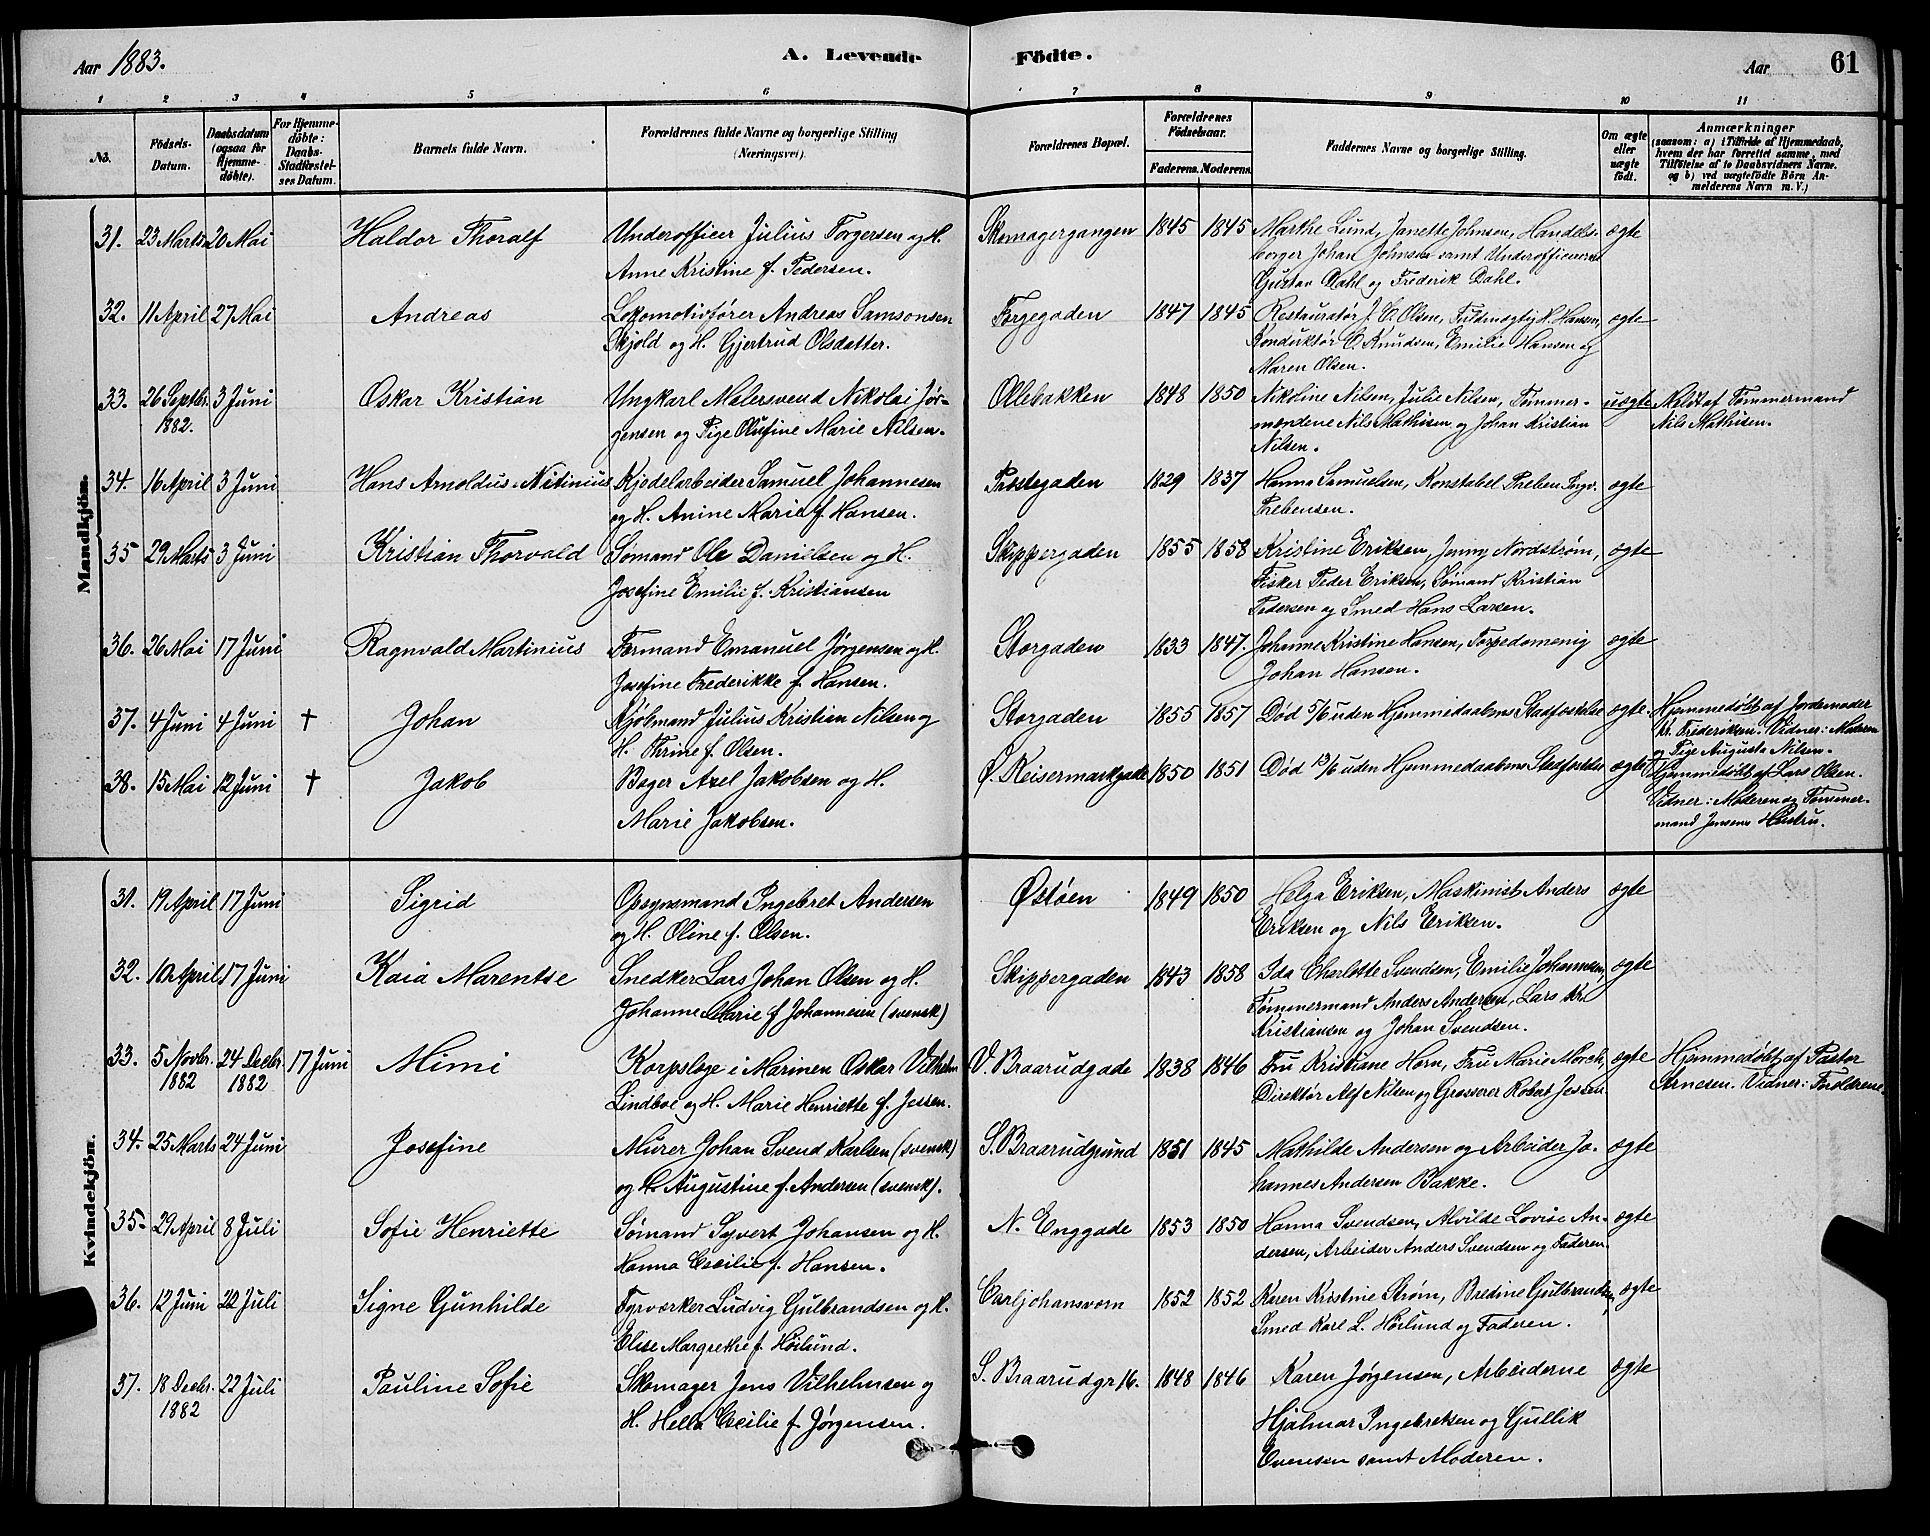 Aar 1883.
A. Levende Födte.
Aar
61
1 2 3 4 5 6 7 8 9 10 11
No.
Födsels-
Datum.
Daabsdatum
(ogsaa for
Hjemme-
döbte).
For Hjemme-
döbte:
Daabs-
Stadfæstel-
ses Datum.
Barnets fulde Navn.
Forældrenes fulde Navne og borgerlige Stilling
(Næringsvei).
Forældrenes Bopæl.
Forældrenes
Födselsaar.
Faderens. Moderens.
Faddernes Navne og borgerlige Stilling.
Om ægte
eller
uægte
födt.
Anmærkninger
(saasom: a) i Tilfælde af Hjemmedaab,
hvem der har forrettet samme, med
Tilföielse af to Daabsvidners Navne.
og b) ved uægtefödte Börn An-
melderens Navn m. V.)
Mandkjön.
31. 23 Marts 20 Mai Haldor Thoralf Underofficer Julius Torgersen og H. Skomagergangen 1845 1845 Marthe Lund, Janette Johnsen, Handels- ægte
Anne Kristine f. Pedersen. borger Johan Johnsen samt Underofficererne
Gustav Dahl og Frederik Dahl.
32. 11 April 27 Mai Andreas Lokomotivfører Andreas Samsonsen Torgegaden 1847 1845 Restauratør J. C. Olsen, Fuldmægtig H. Hansen, ægte
Skjold og H. Gjertrud Olsdatter. Konduktør C. Knudsen, Emilie Hansen og
Maren Olsen.
33. 26 Septbr. 3 Juni Oskar Kristian Ungkarl Malersvend Nikolai Jør- Ollebakken 1848 1850 Nikoline Nilsen, Julie Nilsen, Tømmer- uægte Meldt af Tømmermand
1882. gensen og Pige Olufine Marie Nilsen. mændene Nils Mathisen og Johan Kristian Nils Mathisen.
Nilsen.
34. 16 April 3 Juni Hans Arnoldus Nitinius Kjedelarbeider Samuel Johannesen Prestegaden 1829 1837 Hanna Samuelsen, Konstabel Preben Ingv. ægte
og H. Anine Marie f. Hansen. Prebensen.
35 29 Marts 3 Juni Kristian Thorvald Sømand Ole Danielsen og H. Skippergaden 1855 1858 Kristine Eriksen, Jenny Nordstrøm, ægte
Josefine Emilie f. Kristiansen Fisker Peder Eriksen, Sømand Kristian
Pedersen og Smed Hans Larsen.
36. 26 Mai 17 Juni Ragnvald Martinius Formand Emanuel Jørgensen og H. Storgaden 1833 1847. Johanne Kristine Hansen, Torpedomenig ægte
Josefine Frederikke f. Hansen. Johan Hansen.
37. 4 Juni 4 Juni † Johan Kjølmand Julius Kristian Nilsen og Storgaden 1855 1857 Død 5/6 uden Hjemmedaabens Stadfæstelse ægte. Hjemmedøbt af Jordemoder
H. Thrine f. Olsen. Kr. Frideriksen. Vidner: Moderen
og Pige Augusta Nilsen.
38. 15 Mai 12 Juni † Jakob Bager Axel Jakobsen og H. Ø. Keisermarkgade 1850 1851 Død 13/6 uden Hjemmedaabens Stadfæstelse ægte Hjemmedøbt af Lars Olsen.
Marie Jakobsen. Vidner: Moderen og Tømmer-
mand Jensens Hustru.
Kvindekjön.
31. 19 April 17 Juni Sigrid Opsynsmand Ingebret Andersen Østøen 1849 1850 Helga Eriksen, Maskinist Anders ægte
og H. Oline f. Olsen. Eriksen og Nils Eriksen.
32. 10 April 17 Juni Kaia Marentse Snedker Lars Johan Olsen og H. Skippergaden 1843 1858 Ida Charlotte Svendsen, Emilie Johannesen, ægte
Johanne Marie f Johannesen (svensk) Tømmermand Anders Andersen, Lars Kr.
Kristiansen og Johan Svendsen.
33. 5 Novbr. 24 Decbr. 17 Juni Mimi Korpslæge i Marinen Oskar Vilhelm V. Braarudgade 1838 1846 Fru Kristiane Horn, Fru Marie Morch, ægte Hjemmedøbt af Pastor
1882 1882 Lindboe og H. Marie Henriette f. Jessen. Direktør Alf Nilsen og Grosserer Robert Jessen. Arnesen. Vidner: Forældrene.
34. 25 Marts 24 Juni Josefine Murer Johan Svend Karlsen (svensk) S. Braarudgrund 1851 1845 Mathilde Andersen og Arbeider Jo- ægte
og H. Augustine f. Andersen (svensk). hannes Andersen Bakke.
35. 29 April 8 Juli Sofie Henriette Sømand Syvert Johansen og H. N. Enggade 1853 1850 Hanna Svendsen, Alvilde Lovise An- ægte
Hanna Cecilie f. Hansen. dersen, Arbeider Anders Svendsen og Faderen.
36. 12 Juni 22 Juli Signe Gunhilde Fyrværker Ludvig Gulbrandsen og H. Carljohansværn 1852 1852 Karen Kristine Strøm, Bredine Gulbrandsen, ægte
Elise Margrethe f. Høilund. Smed Karl L. Høilund og Faderen.
37. 18 Decbr. 22 Juli Pauline Sofie Skomager Jens Vilhelmsen og S. Braarudgr 16. 1848 1846 Karen Jørgensen, Arbeiderne ægte
1882 H. Hella Cecilie f. Jørgensen. Hjalmar Ingebretsen og Gullik
Evensen samt Moderen.